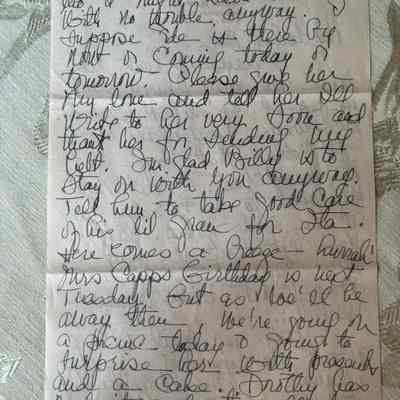 with no trouble, anyway.
Suppose she is there by
now or coming today or
tomorrow. Please give her
my love and tell her I'll
write to her very soon and
thank her for sending my
belt. I'm glad Billy is to
stay on with you anyway.
Tell him to take good care
of his lil gran for
Here comes a hurrah!
Mrs Capps Birthday is next
Tuesday but as we'll be
away then, we're going on
a picnic today & going to
surprise her with presents
and a cake. Dorothy has